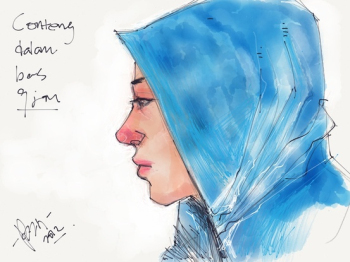 Conteng
dalam
bas
9 jam
2012